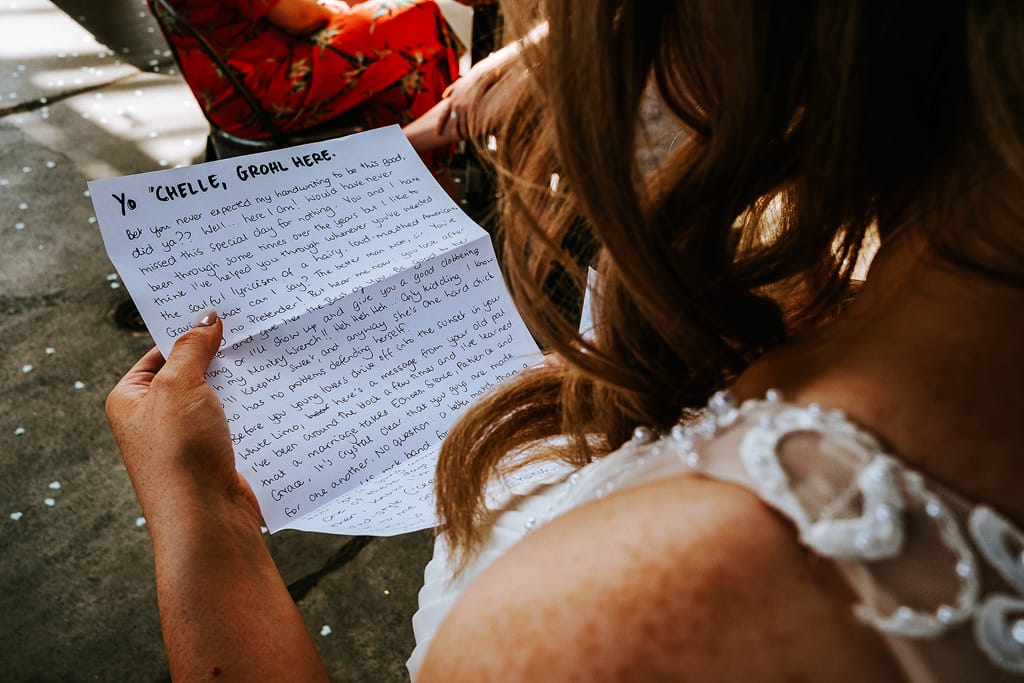 Yo 'CHELLE, GROHL HERE.
Bet you never expected my handwriting to be this good,
did ya?? Well... here I am! I would have never
missed this special day for nothing. You and I have
been through some times over the years but I like to
think I've helped you through whenever you've needed
the soulful lyricism of a hairy loud mouthed American.
what can I say? The better man won, sir. You
no Pretender! But hear me now
and give
long or I'll show up and give you a good clobbering
with my Monkey Wrench!! Heh Heh Heh. Only kidding. I know
you'll keep her sweet, and anyway she's one hard chick
who has no problems defending herself.
Before you young lovers drive off into the sunset in your
white limo, here's a message from your old pal.
I've been around the block a few times and I've learned
that a marriage takes Echoes, Silence, Patience and
Grace, it's crystal clear that you guys are made
for one another. No question a better match than